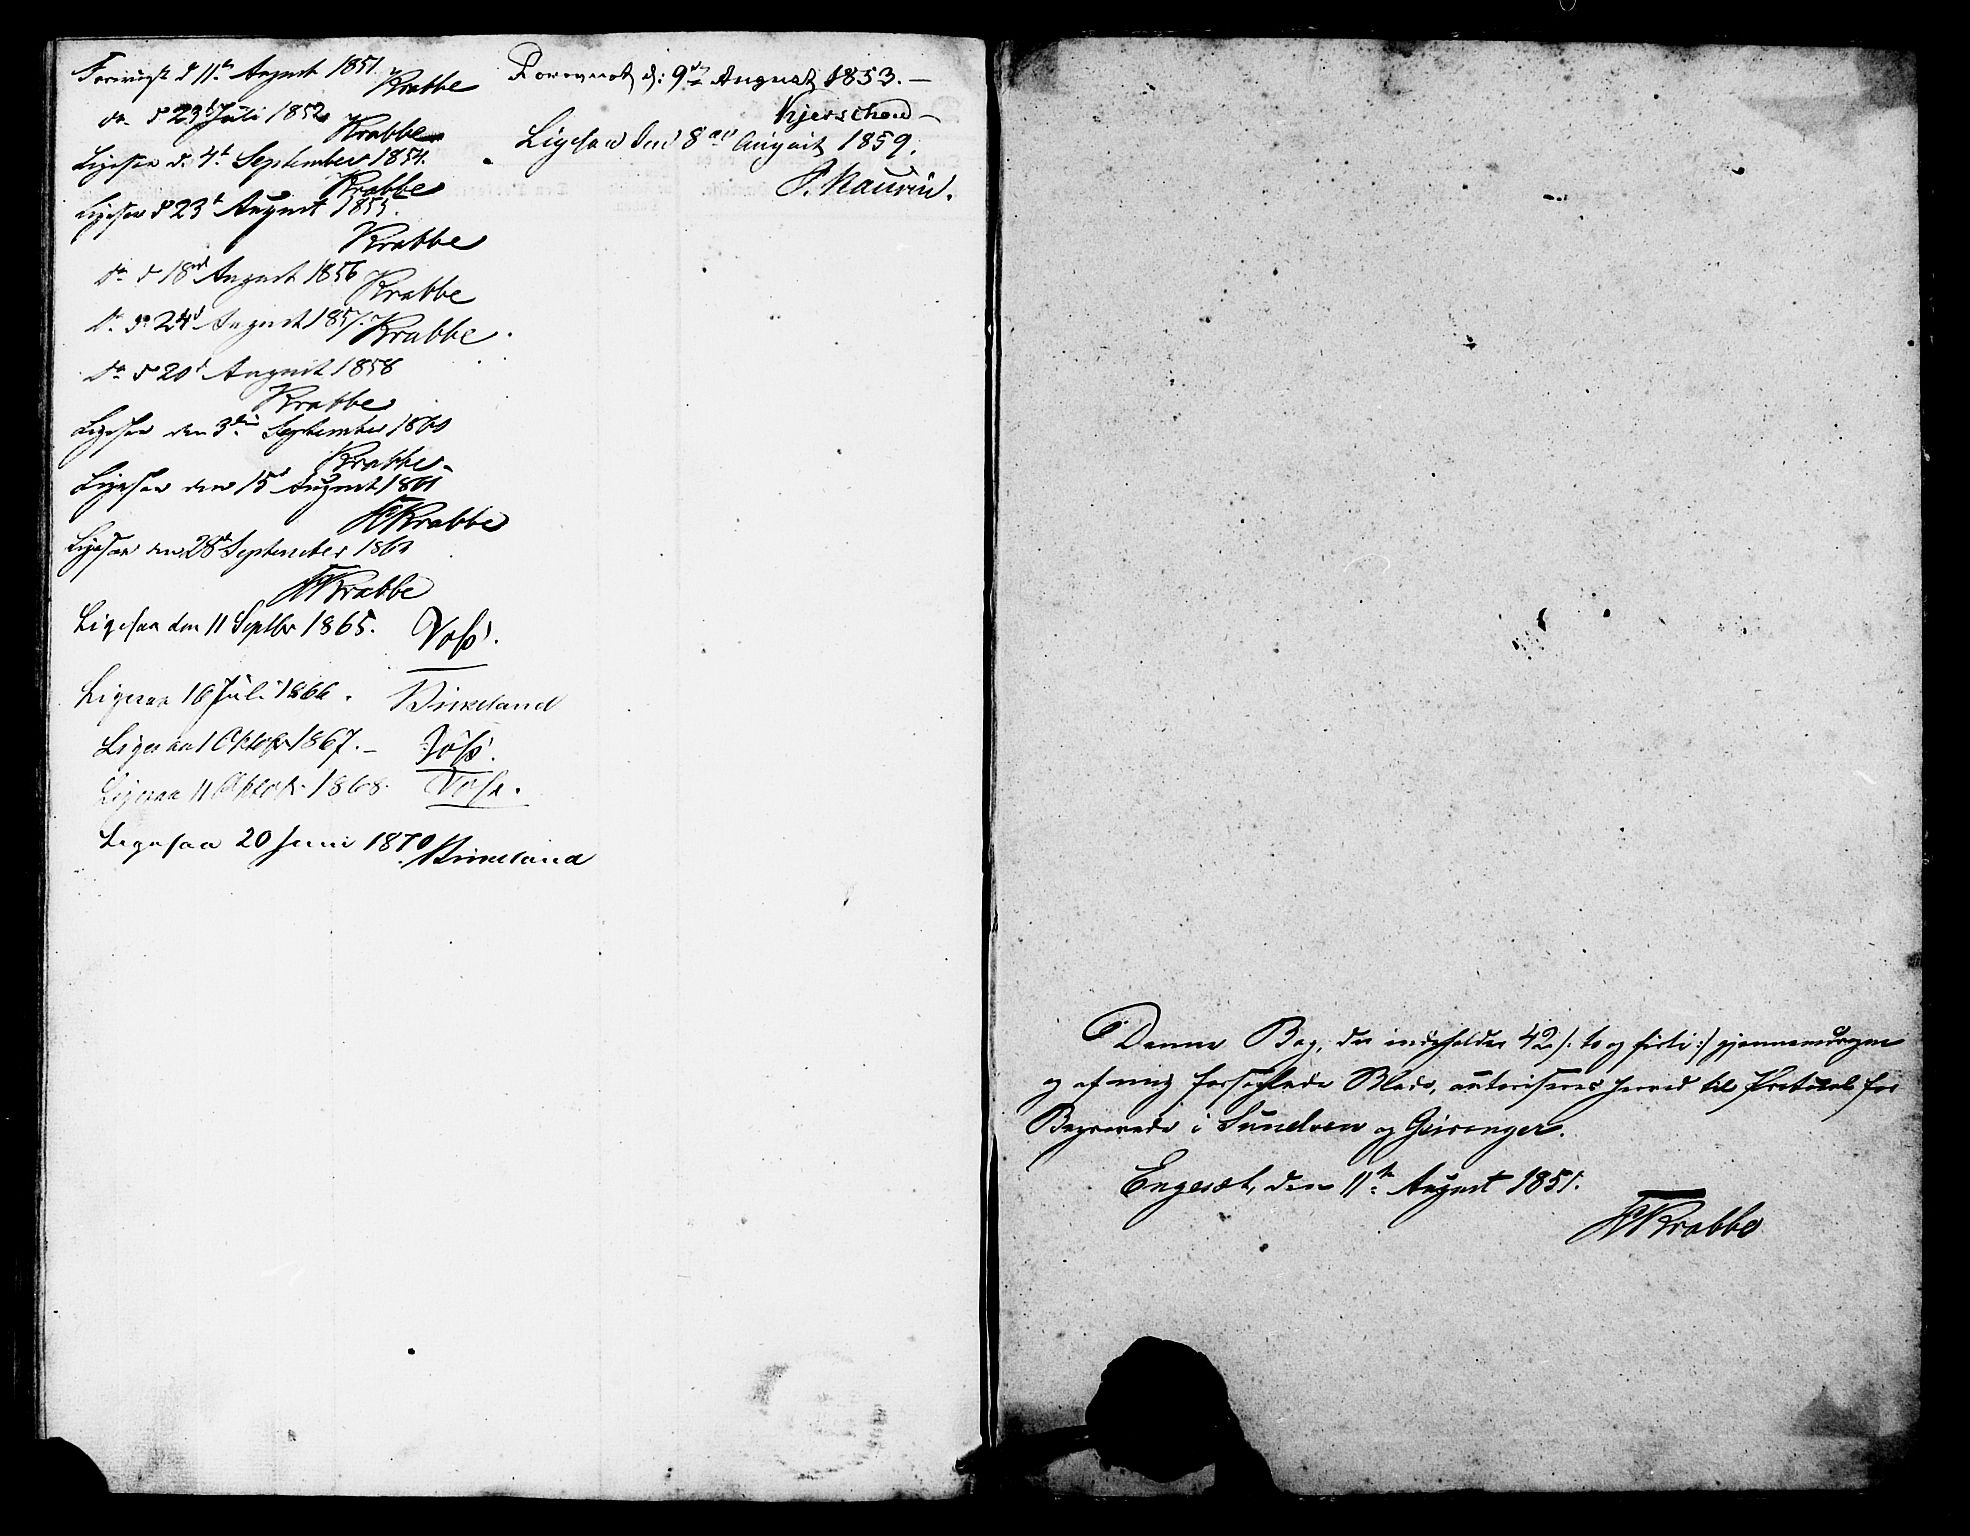 Foreviist d 11te August 1851.
Krabbe
do d 23d Juli 1852
Krabbe
Ligesaa d. 4d September 1854.
Krabbe
Ligesaa d 23d August 1855.
Krabbe
do d 18d August 1856
Krabbe
do d 24d August 1857. Krabbe
do d 20d August 1858
Krabbe
Ligesaa den 3die September 1860
Krabbe
Ligesaa den 15d August 1861
Krabbe
Ligesaa den 28d September 1863
Krabbe
Ligesaa den 11 Septbr 1865. Voss.
Ligesaa 16 Juli 1866. Birkeland
Ligesaa 1 Oktobr 1867. – Voss.
Ligesaa 11 Oktobr 1868. Voss.
Ligesaa 20 Juni 1870. Birkeland
Foreviist d: 9de August 1853. –
Kjerschow –
Ligesaa den 8de August 1859.
Denne Bog, der indeholder 42 /: to og firti :/ gjennemdragne
og af mig forseglede Blade, autoriseres herved til Protocol for
Begravede i Sundven og Geiranger.
Engesæt, den 11te August 1851.
Krabbe